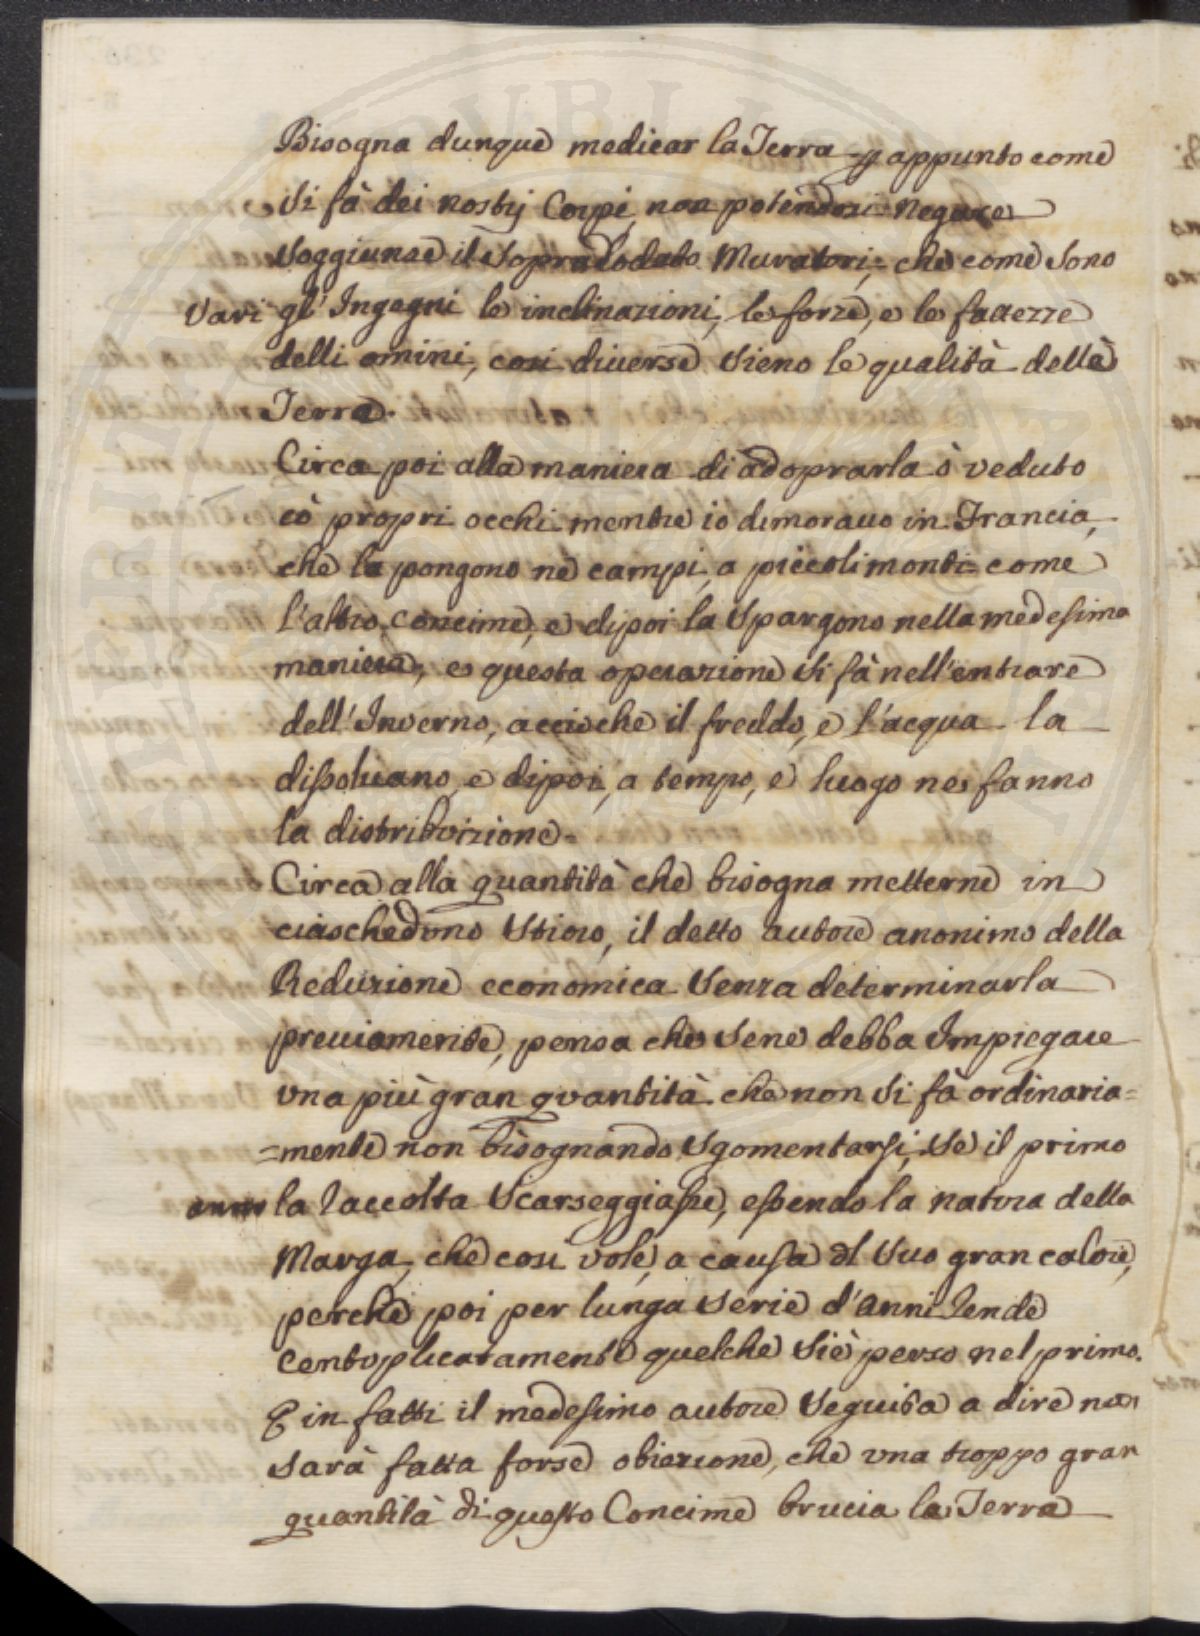 Bisogna dunque medicar la Terra appunto come
si fà dei nostrj Corpi, non potendosi Negare
soggiunse il sopradodato Muratori, che come sono
Varj gl'Ingegni le inclinazioni, le forze, e le fattezze
delli omini, cosi diverse sieno le qualità delle
Terre.
Circa poi alla maniera di adoprarla ò veduto
cò propri occhi mentre io dimoravo in Francia,
che la pongono ne campi, a piccoli monti come
l'altro concime, e dipoi la Spargono nella medesima
maniera, e questa operazione si fà nell'entrare
dell'Inverno, acciò che il freddo, e l'acqua la
dissolvano, e dipoi, a tempo, e luogo ne fanno
la distribuizione.
Circa alla quantità che bisogna metterne in
ciaschedvno Stioro, il detto autore anonimo della
Reduzione economica Senza determinarla
previamente, pensa che sene debba Impiegare
vna più gran qvantità che non si fà ordinaria=
=mente non bisognando Sgomentarsi, se il primo
anno la raccolta Scarseggiasse, essendo la natvra della
Marga, che cosi vole, a causa dl Suo gran calore,
perche poi per lunga serie d'anni rende
centvplicatamente quelche siè perso nel primo.
E in fatti il medesimo autore Seguita a dire ne
sarà fatta forse obiezione, che vna troppo gran
quantità di questo Concime brucia la Terra